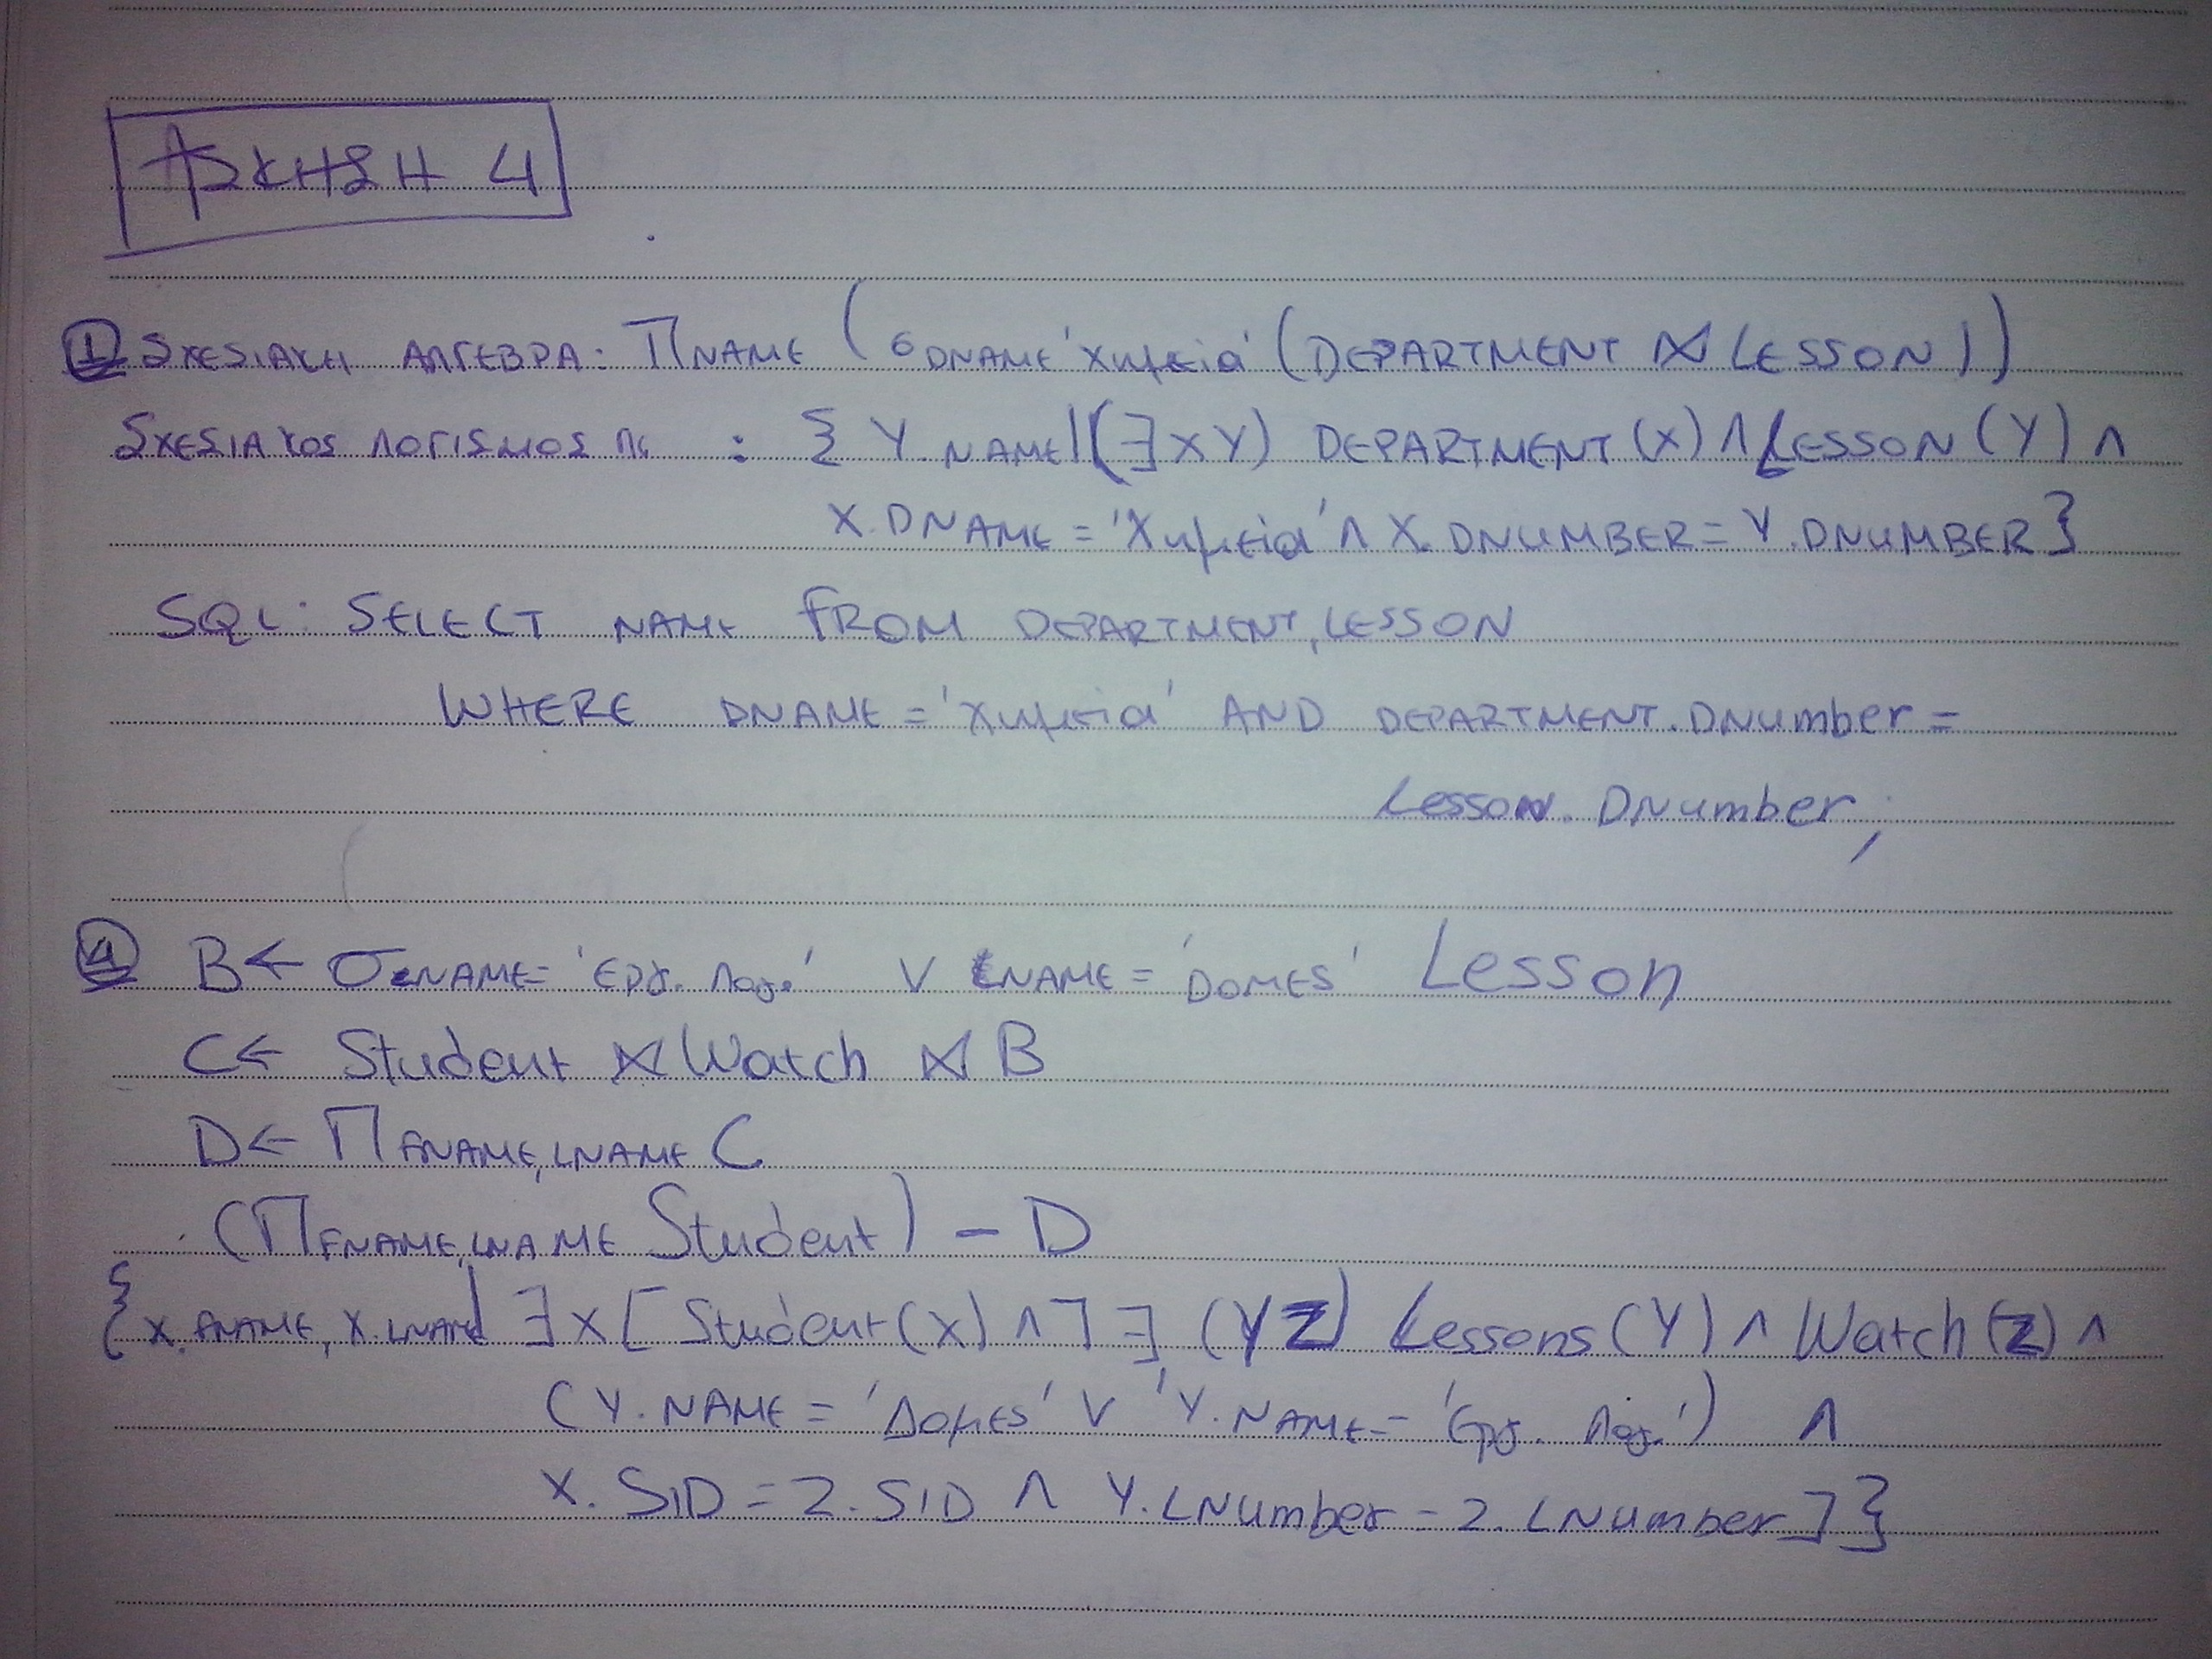 ΑΣΚΗΣΗ 4
① ΣΧΕΣΙΑΚΗ ΑΛΓΕΒΡΑ: Π NAME (σ DNAME 'Χημεία' (DEPARTMENT ⋈ LESSON))
ΣΧΕΣΙΑΚΟΣ ΛΟΓΙΣΜΟΣ ΠΣ : { Y.NAME|(∃XY) DEPARTMENT(X) ∧ LESSON(Y) ∧
X.DNAME = 'Χημεία' ∧ X.DNUMBER = Y.DNUMBER}
SQL: SELECT NAME FROM DEPARTMENT, LESSON
WHERE DNAME = 'Χημεία' AND DEPARTMENT.DNumber =
Lesson.DNumber;
④ B ← σ NAME = 'Εργ. Λογ.' ∨ NAME = 'DOMES' Lesson
C ← Student ⋈ Watch ⋈ B
D ← Π FNAME, LNAME C
(Π FNAME, LNAME Student) – D
{X.FNAME, X.LNAME| ∃X [Student(X) ∧ ¬∃ (YZ) Lessons(Y) ∧ Watch(Z) ∧
(Y.NAME = 'Δομες' ∨ 'Y.NAME = 'Εργ. Λογ.') ∧
X.SID = Z.SID ∧ Y.LNumber = Z.LNumber]}